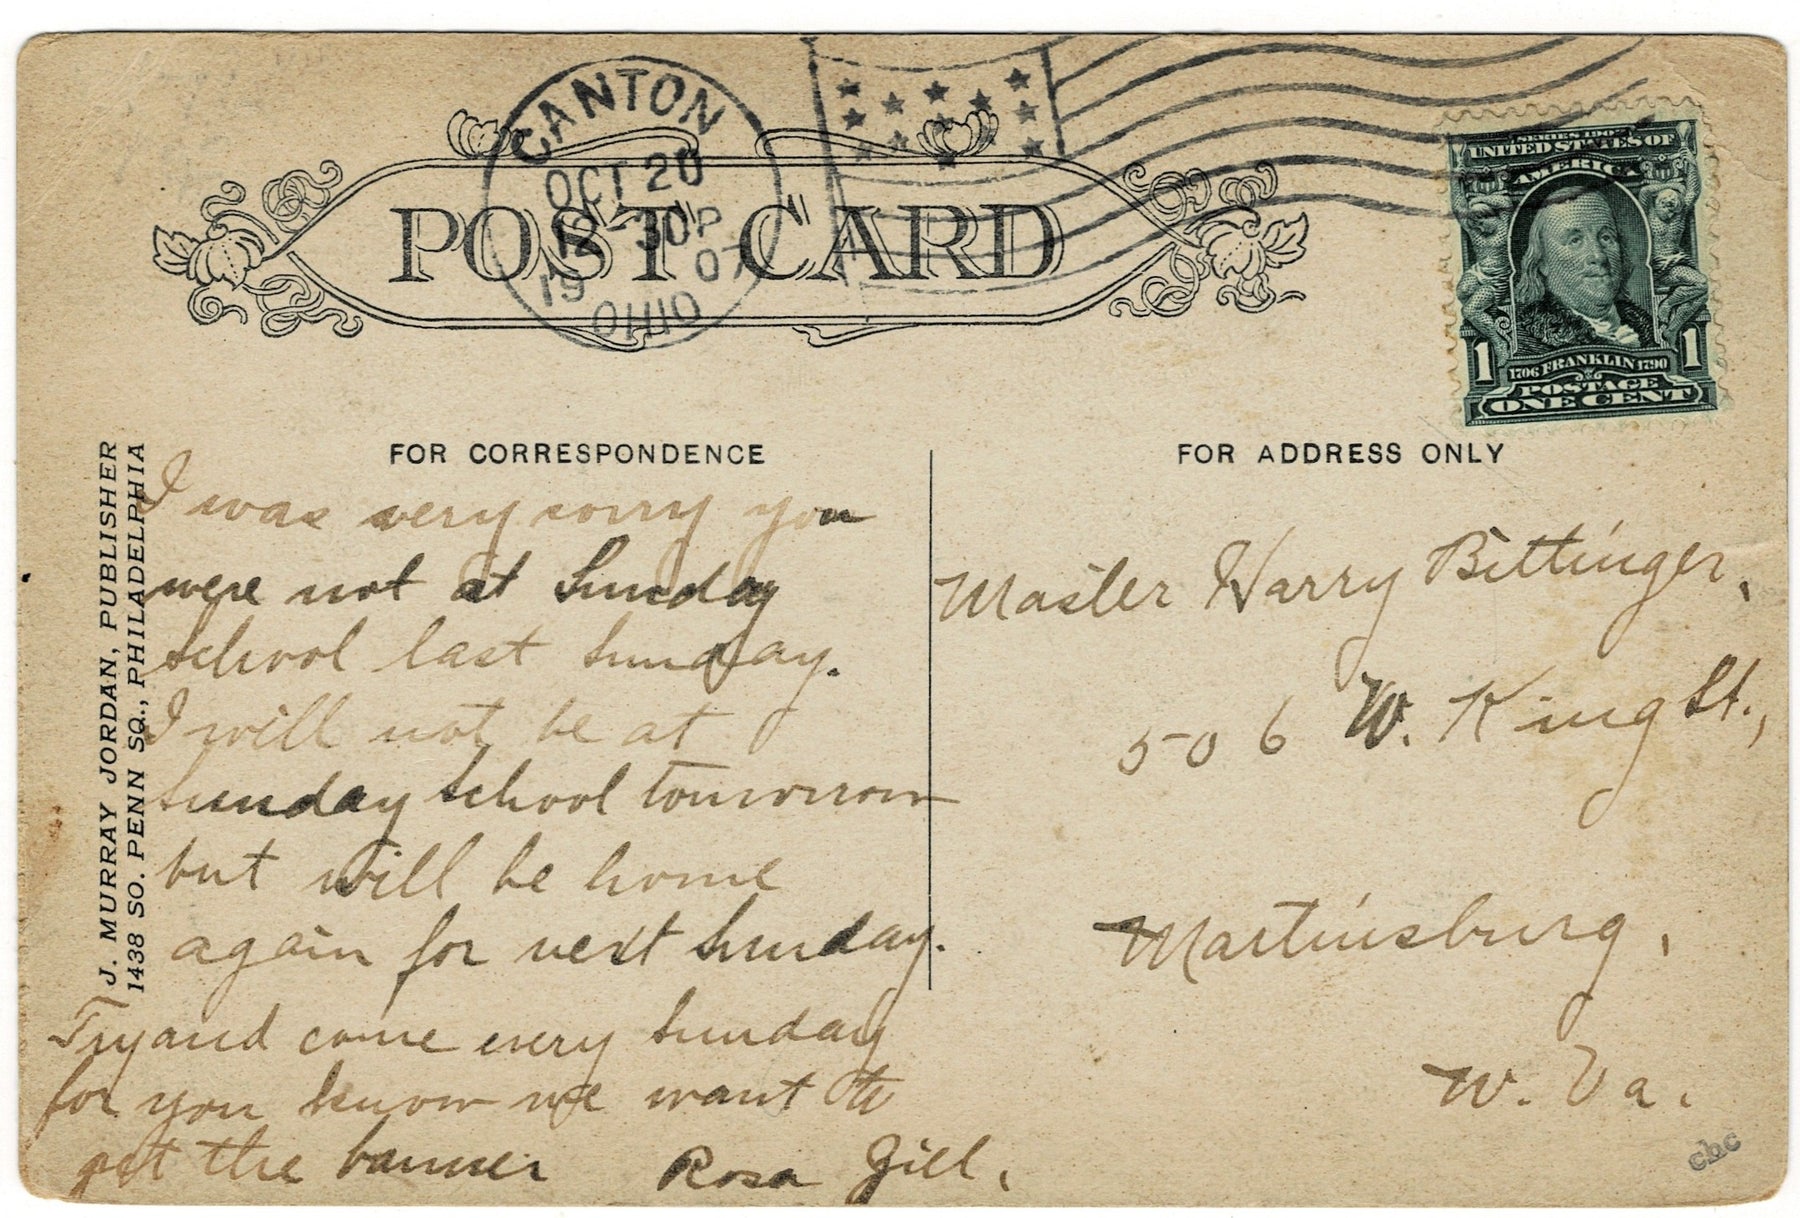 CANTON
OCT 20
12-30P
1907
OHIO
POST CARD
SERIES 1902
UNITED STATES OF
AMERICA
1 1706 FRANKLIN 1790 1
POSTAGE
ONE CENT
FOR CORRESPONDENCE
FOR ADDRESS ONLY
J. MURRAY JORDAN, PUBLISHER
1438 SO. PENN SQ., PHILADELPHIA
I was very sorry you
were not at Sunday
School last Sunday.
I will not be at
Sunday School tomorrow
but will be home
again for next Sunday.
Try and come every Sunday
for you know we want to
get the banner Rosa Gill.
Master Harry Bittinger,
506 W. King St.,
Martinsburg,
W. Va.
cbc